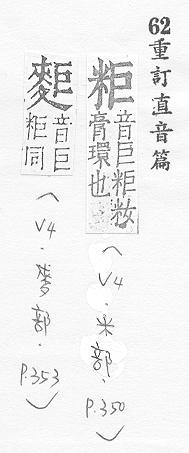 62重訂直音篇
粔音巨粔籹
膏環也
(V4.米部.P.350)
䴶音巨
粔同
(V4.麥部.P.353)